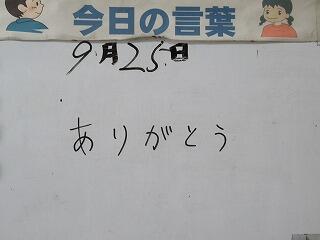 今日の言葉
9月25日
ありがとう